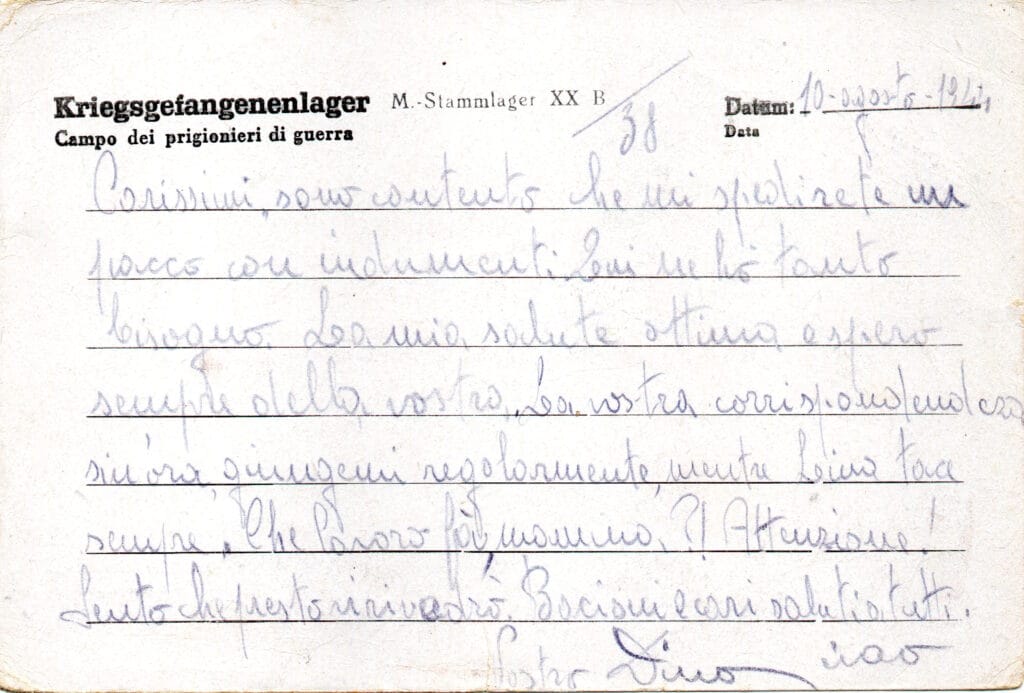 Kriegsgefangenenlager M.-Stammlager XX B Datum: 10-agosto-1944
Campo dei prigionieri di guerra 38 Data
Carissimi, sono contento che mi spedirete un
pacco con indumenti. ne ho tanto
bisogno. La mia salute ottima e spero
sempre della vostra. La vostra corrispondendeza
sin'ora, giungemi regolarmente, mentre Lina tace
sempre. Che lavoro fai, mammina, ?! Attenzione!
Sento che presto vi rivedrò. Bacioni e cari saluti a tutti.
Vostro Dino